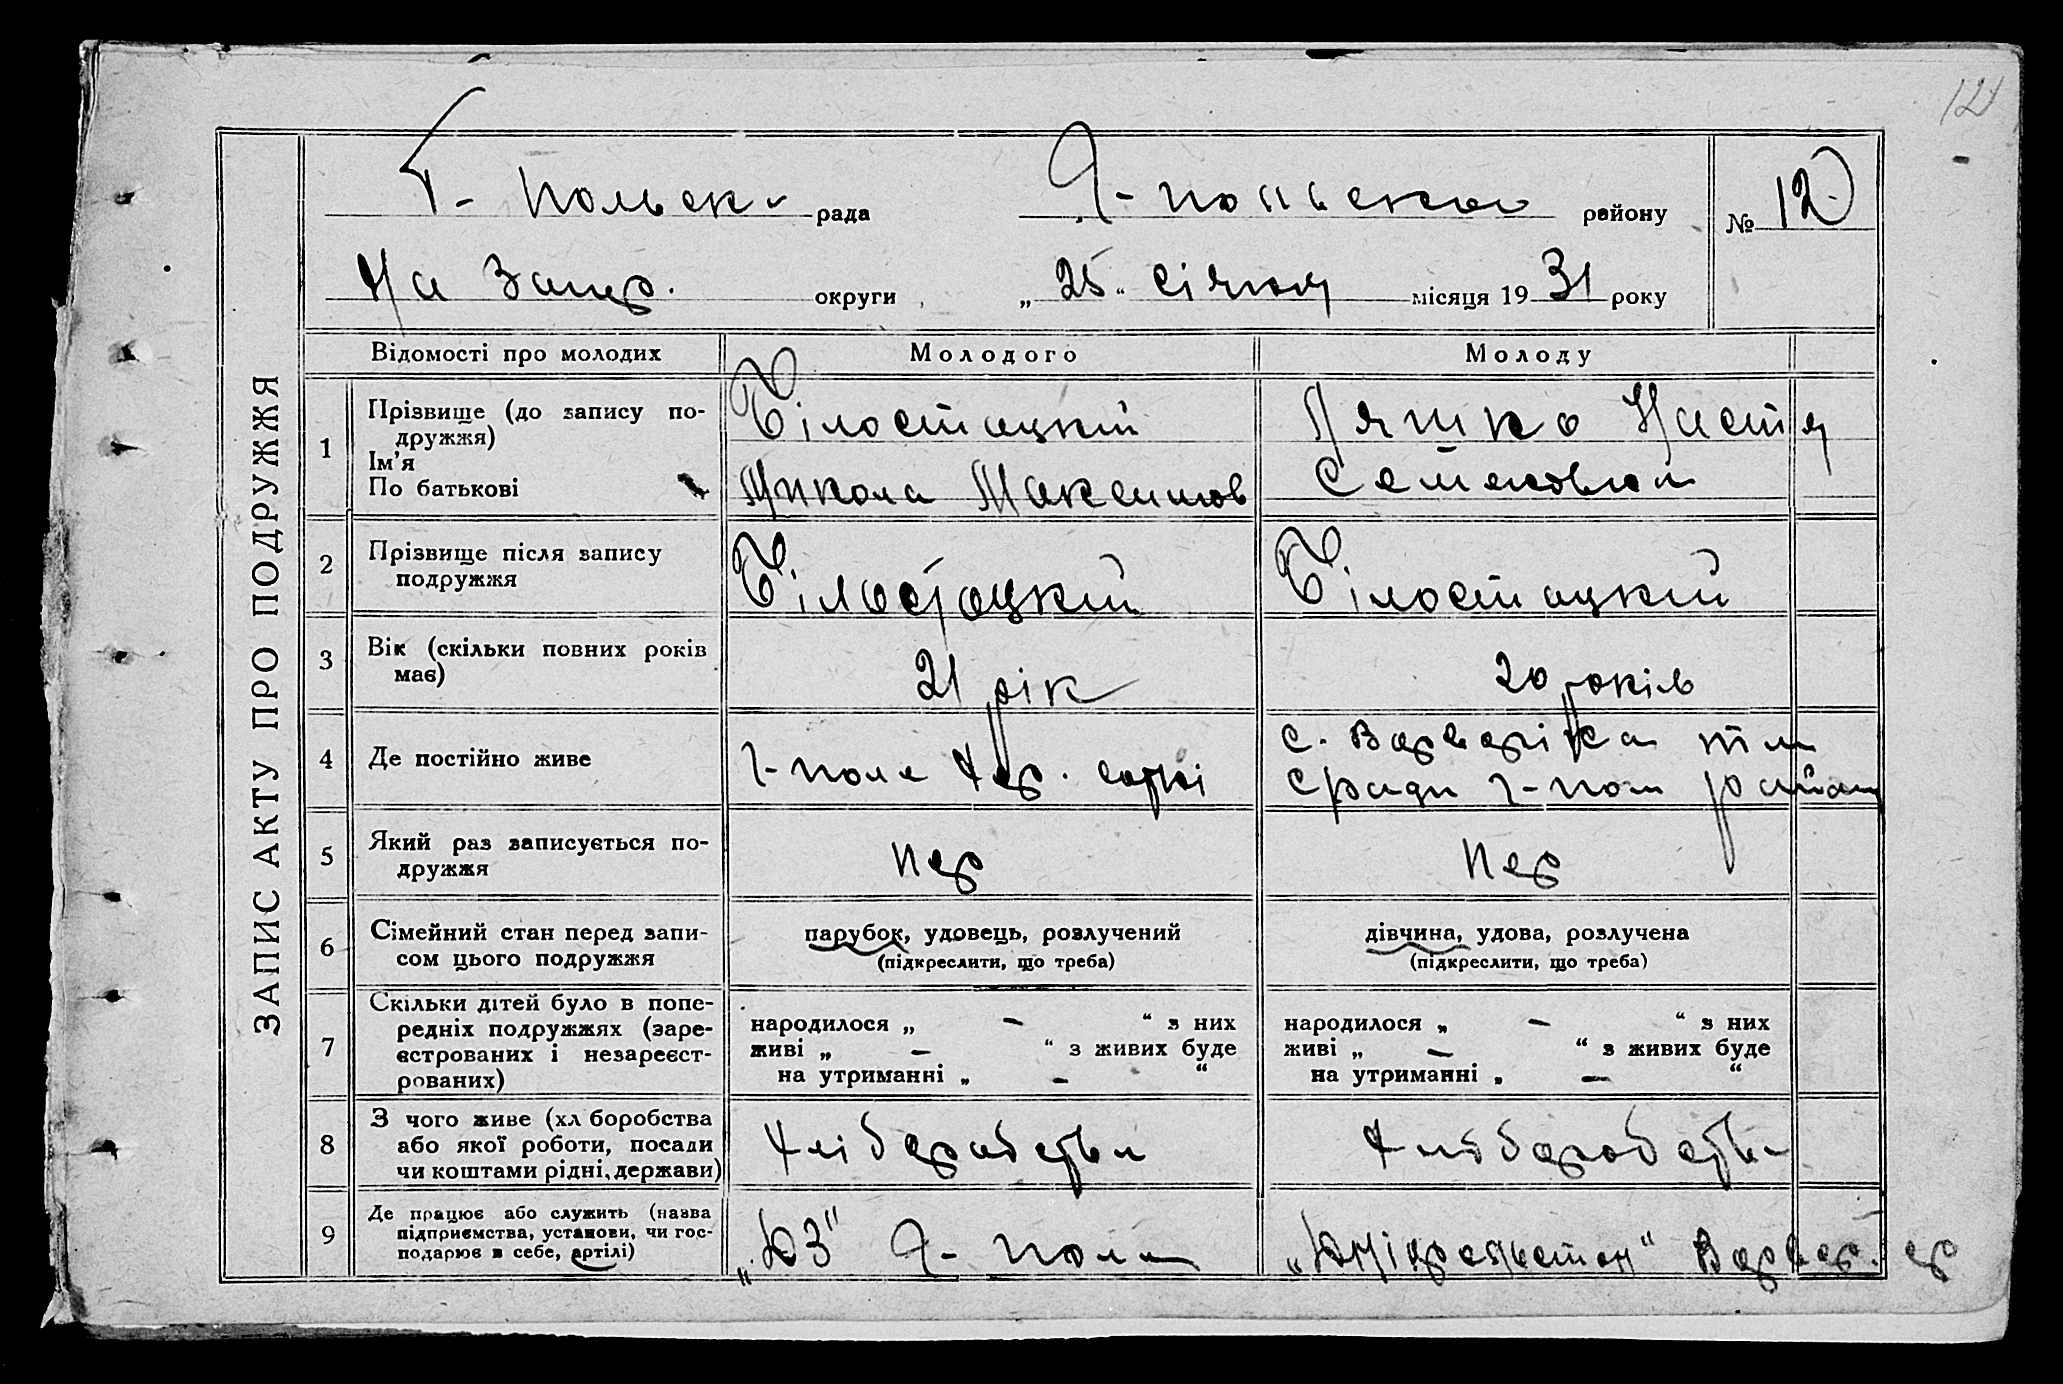 12
Г- польска рада
Г- польского району
№ 12
На Запор. округи
„ 25 “ січня місяця 1931 року
ЗАПИС АКТУ ПРО ПОДРУЖЖЯ
Відомості про молодих
Молодого
Молоду
1
Прізвище (до запису по-
дружжя)
Ім’я
По батькові
Білостоцкий
Микола Максимов
Ляшко Настя
Семеновна
2
Прізвище після запису
подружжя
Білостоцкий
Білостоцкий
3
Вік (скільки повних років
має)
21 рік
20 років
4
Де постійно живе
Г-поле
с. Варварівка
сради Г-пол району
5
Який раз записується по-
дружжя
пер
пер
6
Сімейний стан перед запи-
сом цього подружжя
парубок, удовець, розлучений
(підкреслити, що треба)
дівчина, удова, розлучена
(підкреслити, що треба)
7
Скільки дітей було в попе-
редніх подружжях (заре-
єстрованих і незареєст-
рованих)
народилося „ — “ з них
живі „ — “ з живих буде
на утриманні „ — “
народилося „ — “ з них
живі „ — “ з живих буде
на утриманні „ — “
8
З чого живе (хл боробства
або якої роботи, посади
чи коштами рідні, держави)
хліборобства
хліборобства
9
Де працює або служить (назва
підприємства, установи, чи гос-
подарює в себе, артілі)
Г- поля
Варвар.